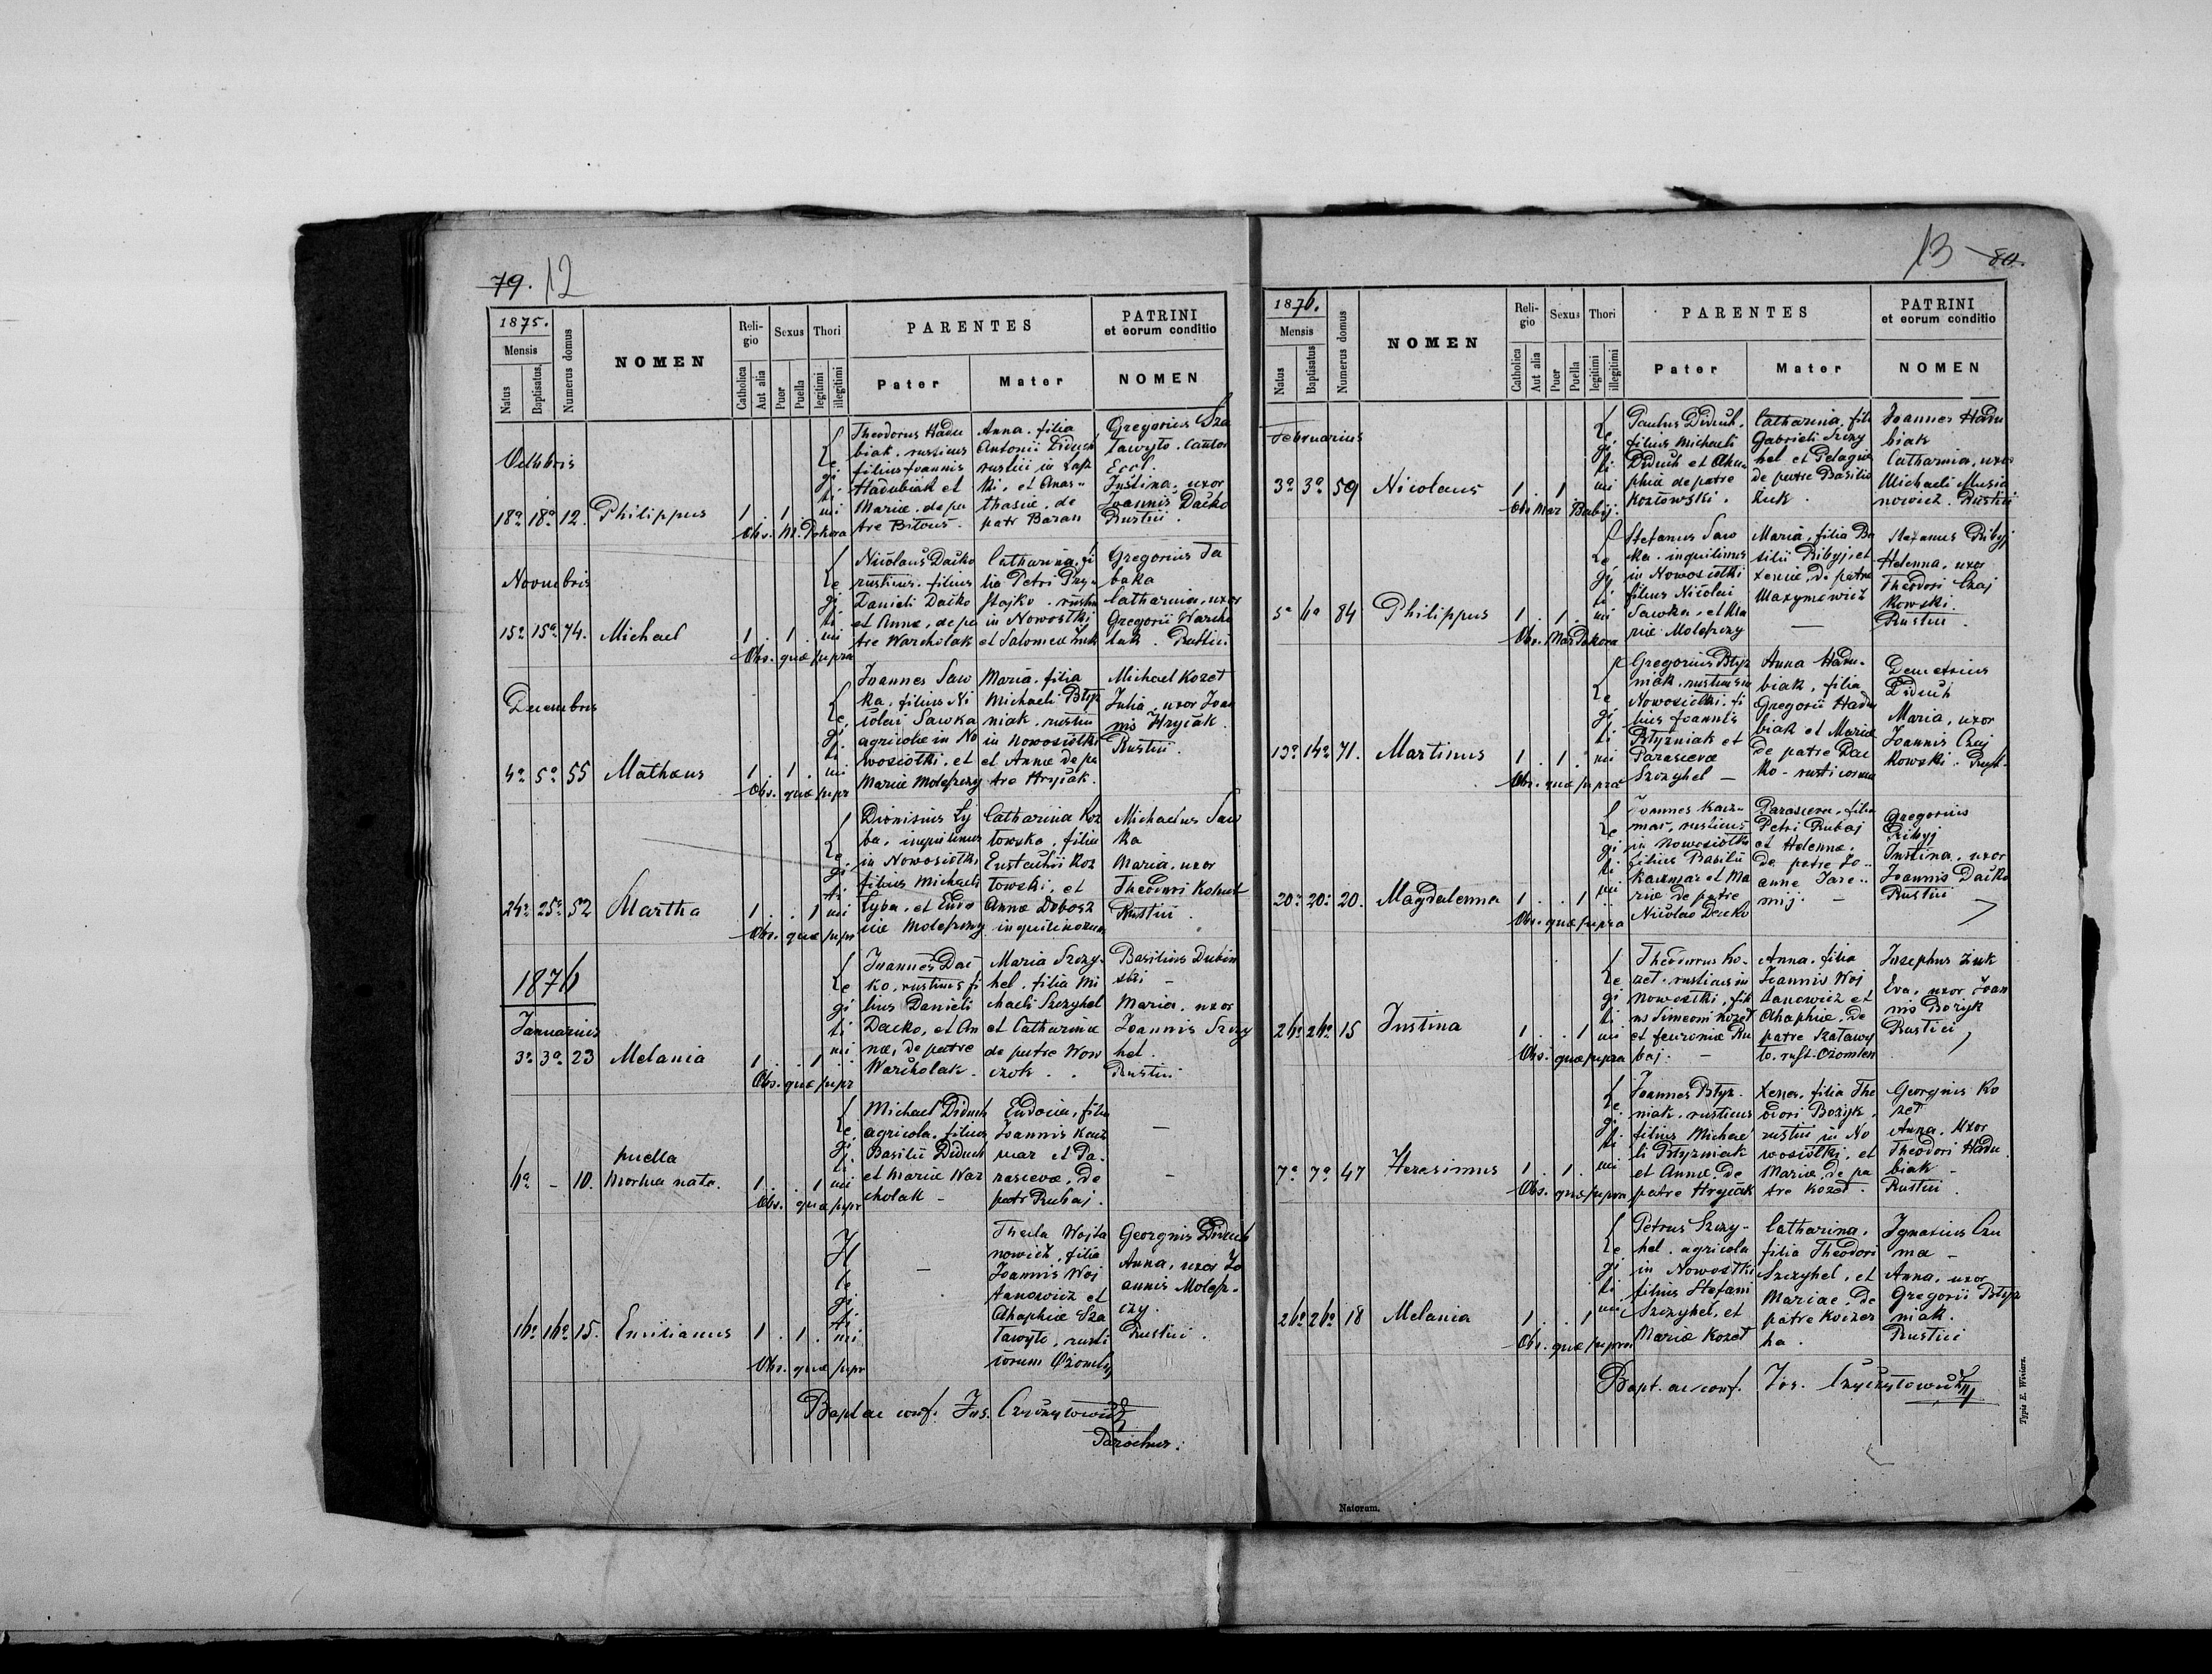 79. 12
1875.
Mensis
Natus
Baptisatus
Numerus domus
NOMEN
Religio
Catholica
Aut alia
Sexus
Puer
Puella
Thori
legitimi
illegitimi
PARENTES
Pater
Mater
PATRINI
et eorum conditio
NOMEN
Octobris
18a 18a 12. Philippus
1 . 1 . Legitimi
Obs. M. Dokora
Theodorus Hadu
biak . rusticus
filius Joannis
Hadubiak et
Mariæ . de pa
tre Bitous .
Anna . filia
Antonii Diduch
rustici in Laszk
ki, et Anas-
thasiæ, de
patr Baran
Gregorius Sza
tawyto . Cantor
Eccl.
Justina, uxor
Joannis Dacko
Rustici .
Novembris
15a 15a 74. Michael
1 . 1 . Legitimi
Obs. quæ supra
Nicolaus Dacko
rusticus . filius
Danieli Dacko
et Annæ, de pa
tre Warcholak
Catharina . fi
lia Petri Przy-
stajko . rustici
in Nowosiłki
et Salomeæ Zuk
Gregorius Ta
baka
Catharina, uxor
Gregorii Warcho
lak . Rustici
Decembris
4a 5a 55 Mathæus
1 . 1 . Legitimi
Obs. quæ supr
Joannes Saw
ka . filius Ni
colai Sawka
agricolæ in No
wosiołki . et
Mariæ Molepszy
Maria . filia
Michaeli Błyz
niak . rustici
in Nowosiołki
et Annæ de pa
tre Hryciak .
Michael Kozeł
Julia . uxor Joan
nis Hryciak .
Rustici .
24a 25a 52 Martha
1 . . 1 Legitimi
Obs. quæ supr
Dionisius Ły
ba, inquilinus
in Nowosiołki
filius Michaeli
Łyba, et Eudo
ciæ Molepszy
Catharina Koz
łowska, filia
Eustachii Koz
łowski, et
Annæ Dobosz
inquilinorum
Michaelus Saw
ka
Maria, uxor
Theodori Kohut
Rustici .
1876
Januarius
3a 3a 23 Melania
1 . . 1 Legitimi
Obs. quæ supr
Joannes Dac
ko, rusticus fi
lius Danieli
Dacko, et An
næ, de patre
Warcholak .
Maria Szczy-
hel . filia Mi
chaeli Szczyhel
et Catharinæ
de patre Wow
czok . .
Basilius Dubin
ski -
Maria . uxor
Joannis Szczy
hel .
Rustici
6a - 10. puella
mortua nata.
1 . . 1 Legitimi
Obs. quæ supr
Michael Diduch
agricola . filius
Basilii Diduch
et Mariæ War
cholak -
Eudocia, filia
Joannis Kacz
mar et Pa-
rascevæ, de
patr Rubaj .
16a 16a 15. Emilianus
1 . 1 . Illegitimi
Obs. quæ supr
Thecla Wojta
nowicz . filia
Joannis Woj
tanowicz et
Ahaphiæ Sza
tawyto, rusti
corum Ożomla
Georgius Diduch
Anna, uxor Jo
annis Molep-
szy .
Rustici .
Bapt ac conf. Jos. Czyczyłowicz
Parochus.
13 80.
1876.
Mensis
Natus
Baptisatus
Numerus domus
NOMEN
Religio
Catholica
Aut alia
Sexus
Puer
Puella
Thori
legitimi
illegitimi
PARENTES
Pater
Mater
PATRINI
et eorum conditio
NOMEN
Februarius
3a 3a 59 Nicolaus
1 . 1 . Legitimi
Obs Mar. Babij.
Paulus Diduch .
filius Michaeli
Diduch et Aha-
phiæ de patre
Kozłowski .
Catharina . fili
Gabrieli Szczy
hel et Pelagiæ
de patre Basilio
Zuk .
Joannes Hadu
biak
Catharina, uxor
Michaeli Musia
nowicz . Rustici
5a 6a 84 Philippus
1 . 1 . Legitimi
Obs. Mar Dokora
Stefanus Saw
ka . inquilinus
in Nowosiołki
filius Nicolai
Sawka . et Ma
riæ Molepszy
Maria . filia Ba
silii Ribyj, et
Xeniæ, de patre
Maxymowicz
Stefanus Ribyj
Helenna, uxor
Theodori Czaj
kowski .
Rustici .
13a 14a 71. Martinus
1 . 1 . Legitimi
Obs. quæ supra
Gregorius Błyz
niak . rusticus in
Nowosiołki . fi
lius Joannis
Błyzniak et
Parascevæ
Szczyhel -
Anna Hadu-
biak . filia
Gregorii Hadu
biak et Mariæ
de patre Dac
ko . rusticorum
Demetrius
Diduch
Maria, uxor
Joannis Czaj
kowski . Rust-
20a 20a 20. Magdalenna
1 . . 1 Legitimi
Obs. quæ supra
Joannes Kacz-
mar, rusticus
in Nowosiołki
filius Basilii
Kaczmar et Ma
riæ de patre
Nicolao Dacko
Parasceva . filia
Petri Rubaj
et Helennæ .
de patre Jo-
anne Jare-
mij . -
Gregorius
Ribyj
Justina . uxor
Joannis Dacko
Rustici
26a 26a 15 Justina
1 . . 1 Legitimi
Obs. quæ supra
Theodorus Ko-
zeł . rusticus in
Nowosiołki, fili
us Simeoni Kozeł
et Fevroniæ Ru
baj . -
Anna . filia
Joannis Woj
tanowicz et
Ahaphiæ . de
patre Szatawy
to . rust . Ożomlen
Josephus Zuk
Eva, uxor Joan
nis Bożyk
Rustici
7a 7a 47 Herasimus
1 . 1 . Legitimi
Obs. quæ supra
Joannes Błyz-
niak . rusticus
filius Michae
li Błyzniak
et Annæ . de
patre Hryciak
Xenia, filia The
odori Bożyk .
rustici in No
wosiołki, et
Mariæ, de pa
tre Kozeł .
Georgius Ko
zeł
Anna . uxor
Theodori Hadu
biak -
Rustici .
26a 26a 18 Melania
1 . . 1 Legitimi
Obs. quæ supra
Petrus Szczy-
hel . agricola
in Nowosiołki
filius Stefani
Szczyhel, et
Mariæ Kozeł
Catharina .
filia Theodori
Szczyhel, et
Mariae . de
patre Koczer
ha .
Ignatius Czu
ma -
Anna, uxor
Gregorii Błyz
niak .
Rustici
Bapt. ac conf. Jos. Czyczyłowicz
Typis E. Winiarz.
Natorum.